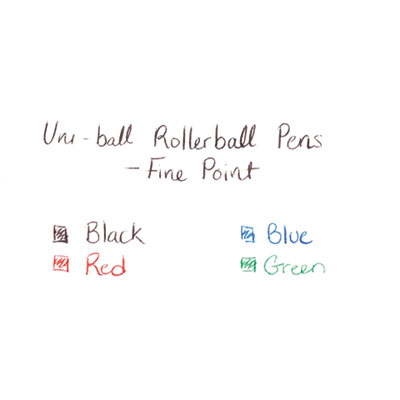 Uni-ball Rollerball Pens
- Fine Point
Black
Blue
Red
Green